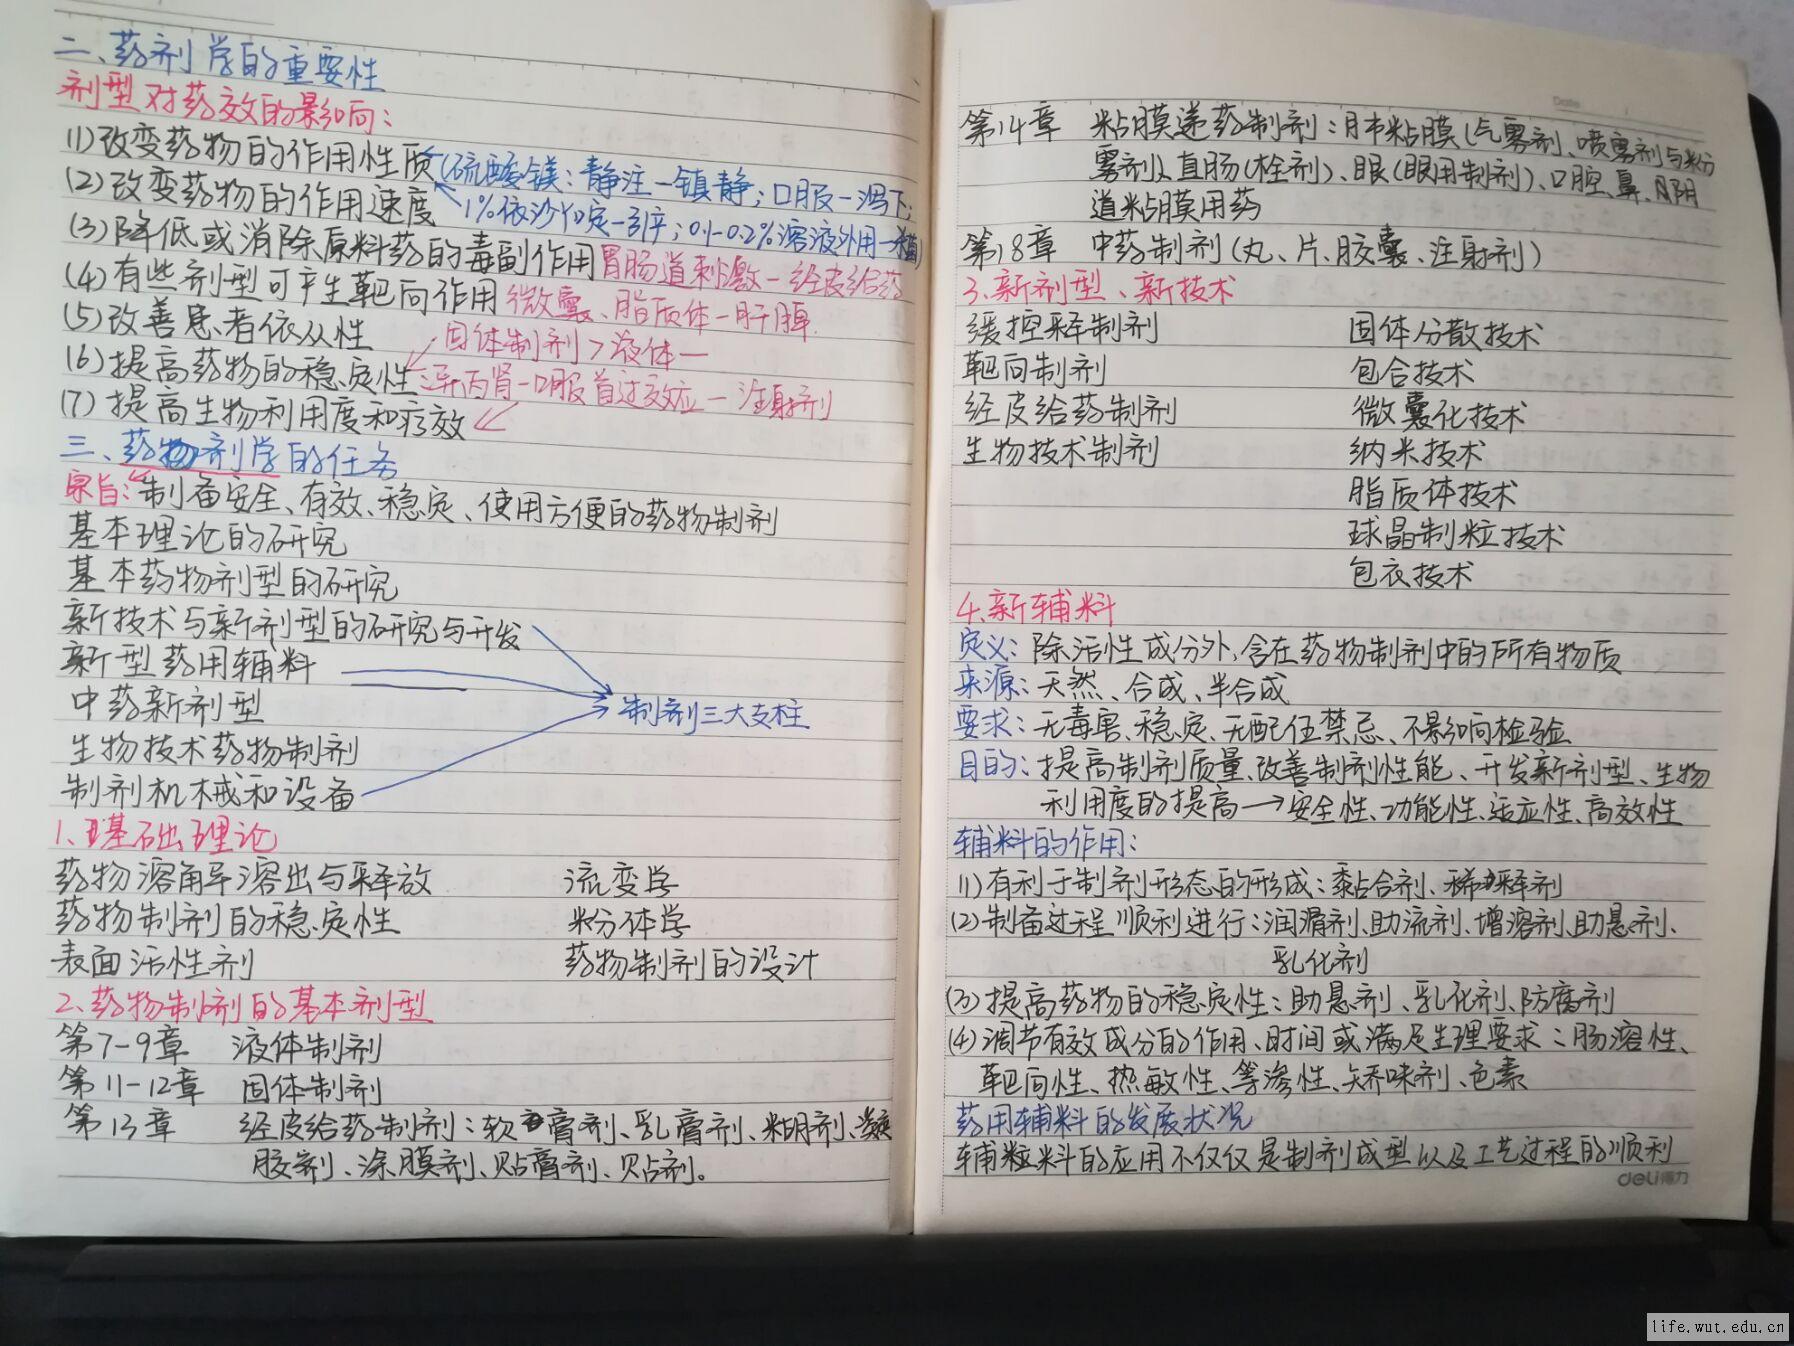 二、药剂学的重要性
剂型对药效的影响：
(1)改变药物的作用性质(硫酸镁：静注—镇静；口服—泻下；
(2)改变药物的作用速度 1%依沙吖啶—引产；0.1-0.2%溶液外用—杀菌)
(3)降低或消除原料药的毒副作用 胃肠道刺激—经皮给药
(4)有些剂型可产生靶向作用 微囊、脂质体—肝脾
(5)改善患者依从性
固体制剂>液体—
(6)提高药物的稳定性
异丙肾—口服首过效应—注射剂
(7)提高生物利用度和疗效
三、药物剂学的任务
宗旨：制备安全、有效、稳定、使用方便的药物制剂
基本理论的研究
基本药物剂型的研究
新技术与新剂型的研究与开发
新型药用辅料
中药新剂型 制剂三大支柱
生物技术药物制剂
制剂机械和设备
1、基础理论
药物溶解溶出与释放 流变学
药物制剂的稳定性 粉体学
表面活性剂 药物制剂的设计
2、药物制剂的基本剂型
第7-9章 液体制剂
第11-12章 固体制剂
第13章 经皮给药制剂：软膏剂、乳膏剂、糊剂、凝
胶剂、涂膜剂、贴膏剂、贴剂。
Date
第14章 粘膜递药制剂：肺粘膜(气雾剂、喷雾剂与粉
雾剂)、直肠(栓剂)、眼(眼用制剂)、口腔、鼻、阴
道粘膜用药
第18章 中药制剂(丸、片、胶囊、注射剂)
3、新剂型、新技术
缓控释制剂 固体分散技术
靶向制剂 包合技术
经皮给药制剂 微囊化技术
生物技术制剂 纳米技术
脂质体技术
球晶制粒技术
包衣技术
4、新辅料
定义：除活性成分外，含在药物制剂中的所有物质
来源：天然、合成、半合成
要求：无毒害、稳定、无配伍禁忌、不影响检验
目的：提高制剂质量、改善制剂性能、开发新剂型、生物
利用度的提高→安全性、功能性、适应性、高效性
辅料的作用：
(1)有利于制剂形态的形成：黏合剂、稀释剂
(2)制备过程顺利进行：润滑剂、助流剂、增溶剂、助悬剂、
乳化剂
(3)提高药物的稳定性：助悬剂、乳化剂、防腐剂
(4)调节有效成分的作用、时间或满足生理要求：肠溶性、
靶向性、热敏性、等渗性、矫味剂、色素
药用辅料的发展状况
辅料的应用不仅仅是制剂成型以及工艺过程的顺利
deli得力
life.wut.edu.cn